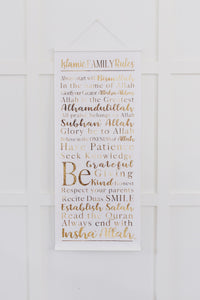 Islamic FAMILY Rules
Always start with Bismillah
In the name of Allah
Allah is the Greatest
Alhamdulillah
All praises to Allah
Subhan Allah
Glory be to Allah
Believe in the ONENESS of Allah
Have Patience
Seek Knowledge
Be Grateful
Giving
Kind Honest
Respect your parents
Recite Duas SMILE
Establish Salah
Read the Quran
Always end with
Insha Allah